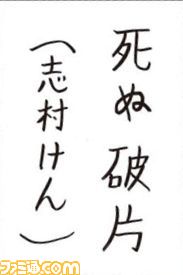 死ぬ破片
（志村けん）
ファミ通.com